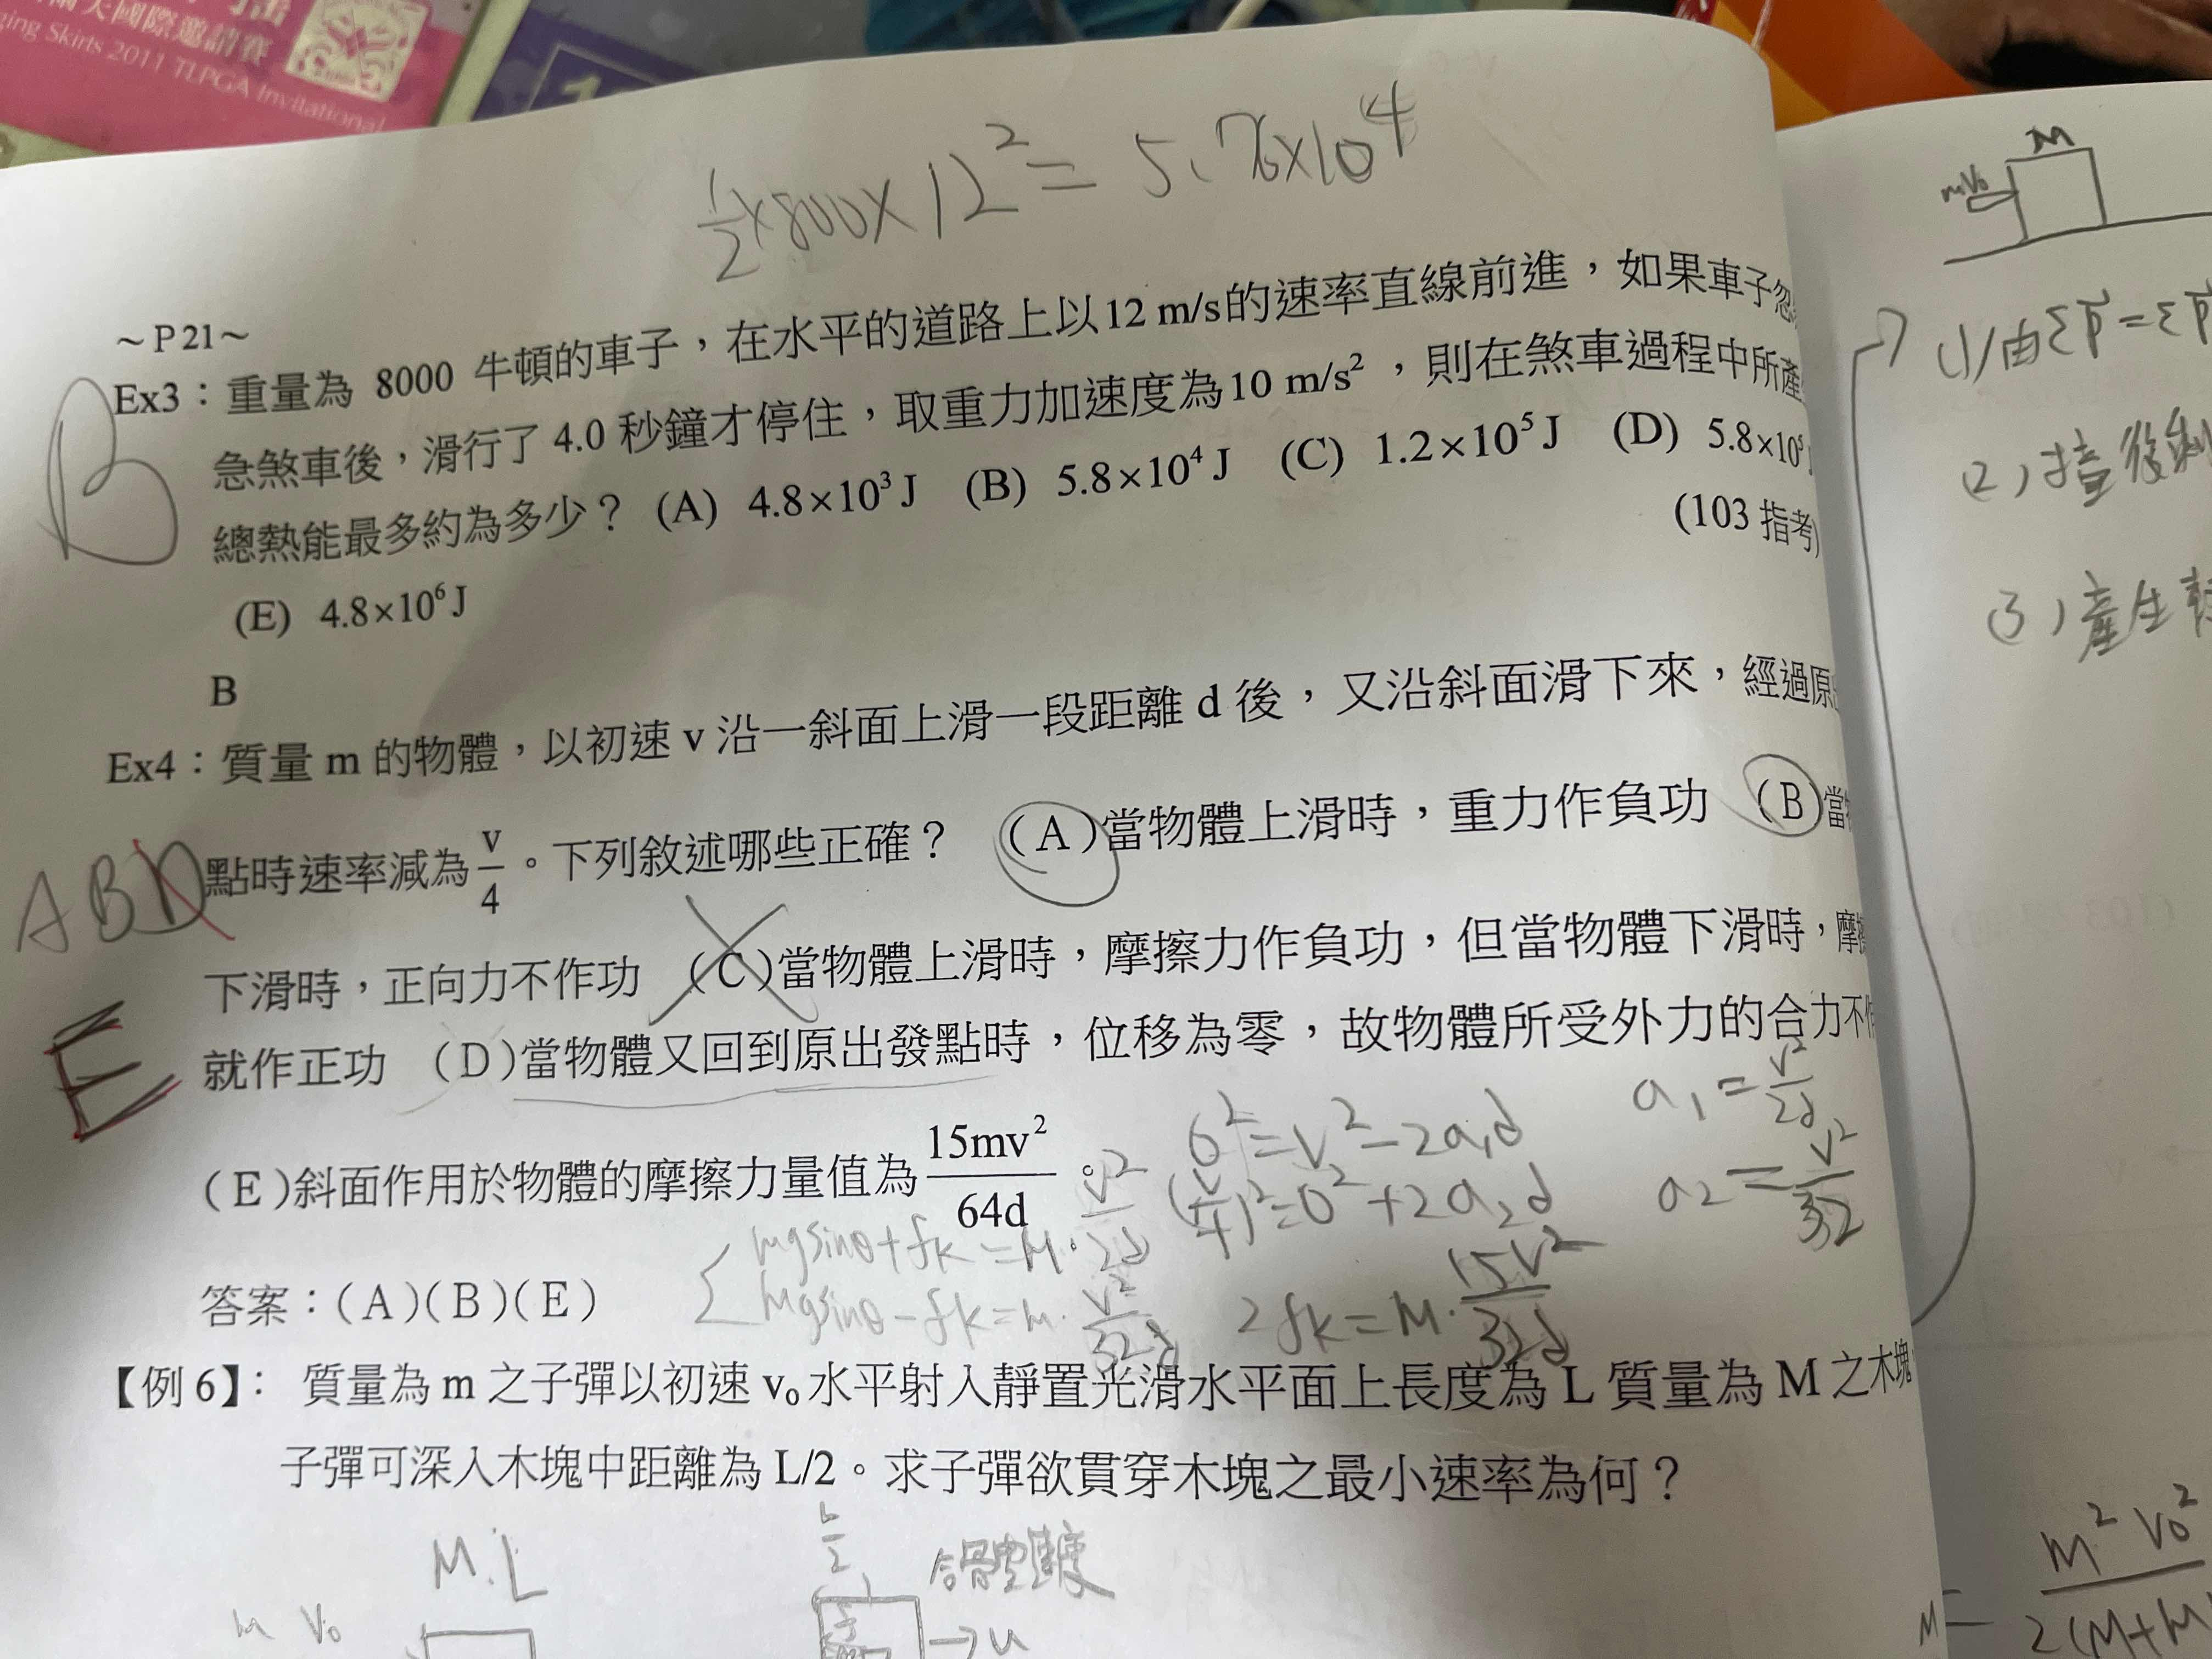 大國際邀請賽
ging Skirts 2011 TLPGA Invitational
½×800×12²=5.76×10⁴
～P21～
Ex3：重量為 8000 牛頓的車子，在水平的道路上以12 m/s的速率直線前進，如果車子忽
急煞車後，滑行了 4.0 秒鐘才停住，取重力加速度為10 m/s²，則在煞車過程中所產
總熱能最多約為多少？ (A) 4.8×10³ J (B) 5.8×10⁴ J (C) 1.2×10⁵ J (D) 5.8×10⁵
(103 指考)
(E) 4.8×10⁶ J
B
B
Ex4：質量 m 的物體，以初速 v 沿一斜面上滑一段距離 d 後，又沿斜面滑下來，經過原
點時速率減為 v/4 。下列敘述哪些正確？ (A)當物體上滑時，重力作負功 (B)當
ABD
下滑時，正向力不作功 (C)當物體上滑時，摩擦力作負功，但當物體下滑時，摩
就作正功 (D)當物體又回到原出發點時，位移為零，故物體所受外力的合力不
E
(E)斜面作用於物體的摩擦力量值為 15mv²/64d 。
0²=v²-2a₁d
a₁=v²/2d
(v/4)²=0²+2a₂d
a₂=v²/32
mgsinθ+fk=m·v²/2d
mgsinθ-fk=m·v²/32d
2fk=m·15v²/32d
答案：(A)(B)(E)
【例 6】： 質量為 m 之子彈以初速 v₀水平射入靜置光滑水平面上長度為 L 質量為 M 之木塊
子彈可深入木塊中距離為 L/2。求子彈欲貫穿木塊之最小速率為何？
M.L
m v₀
L/2
→u
M
mv₀
(1)由Σp⃗=Σp⃗
(2)撞後剩
(3)產生熱
= m²v₀²/2(M+m)